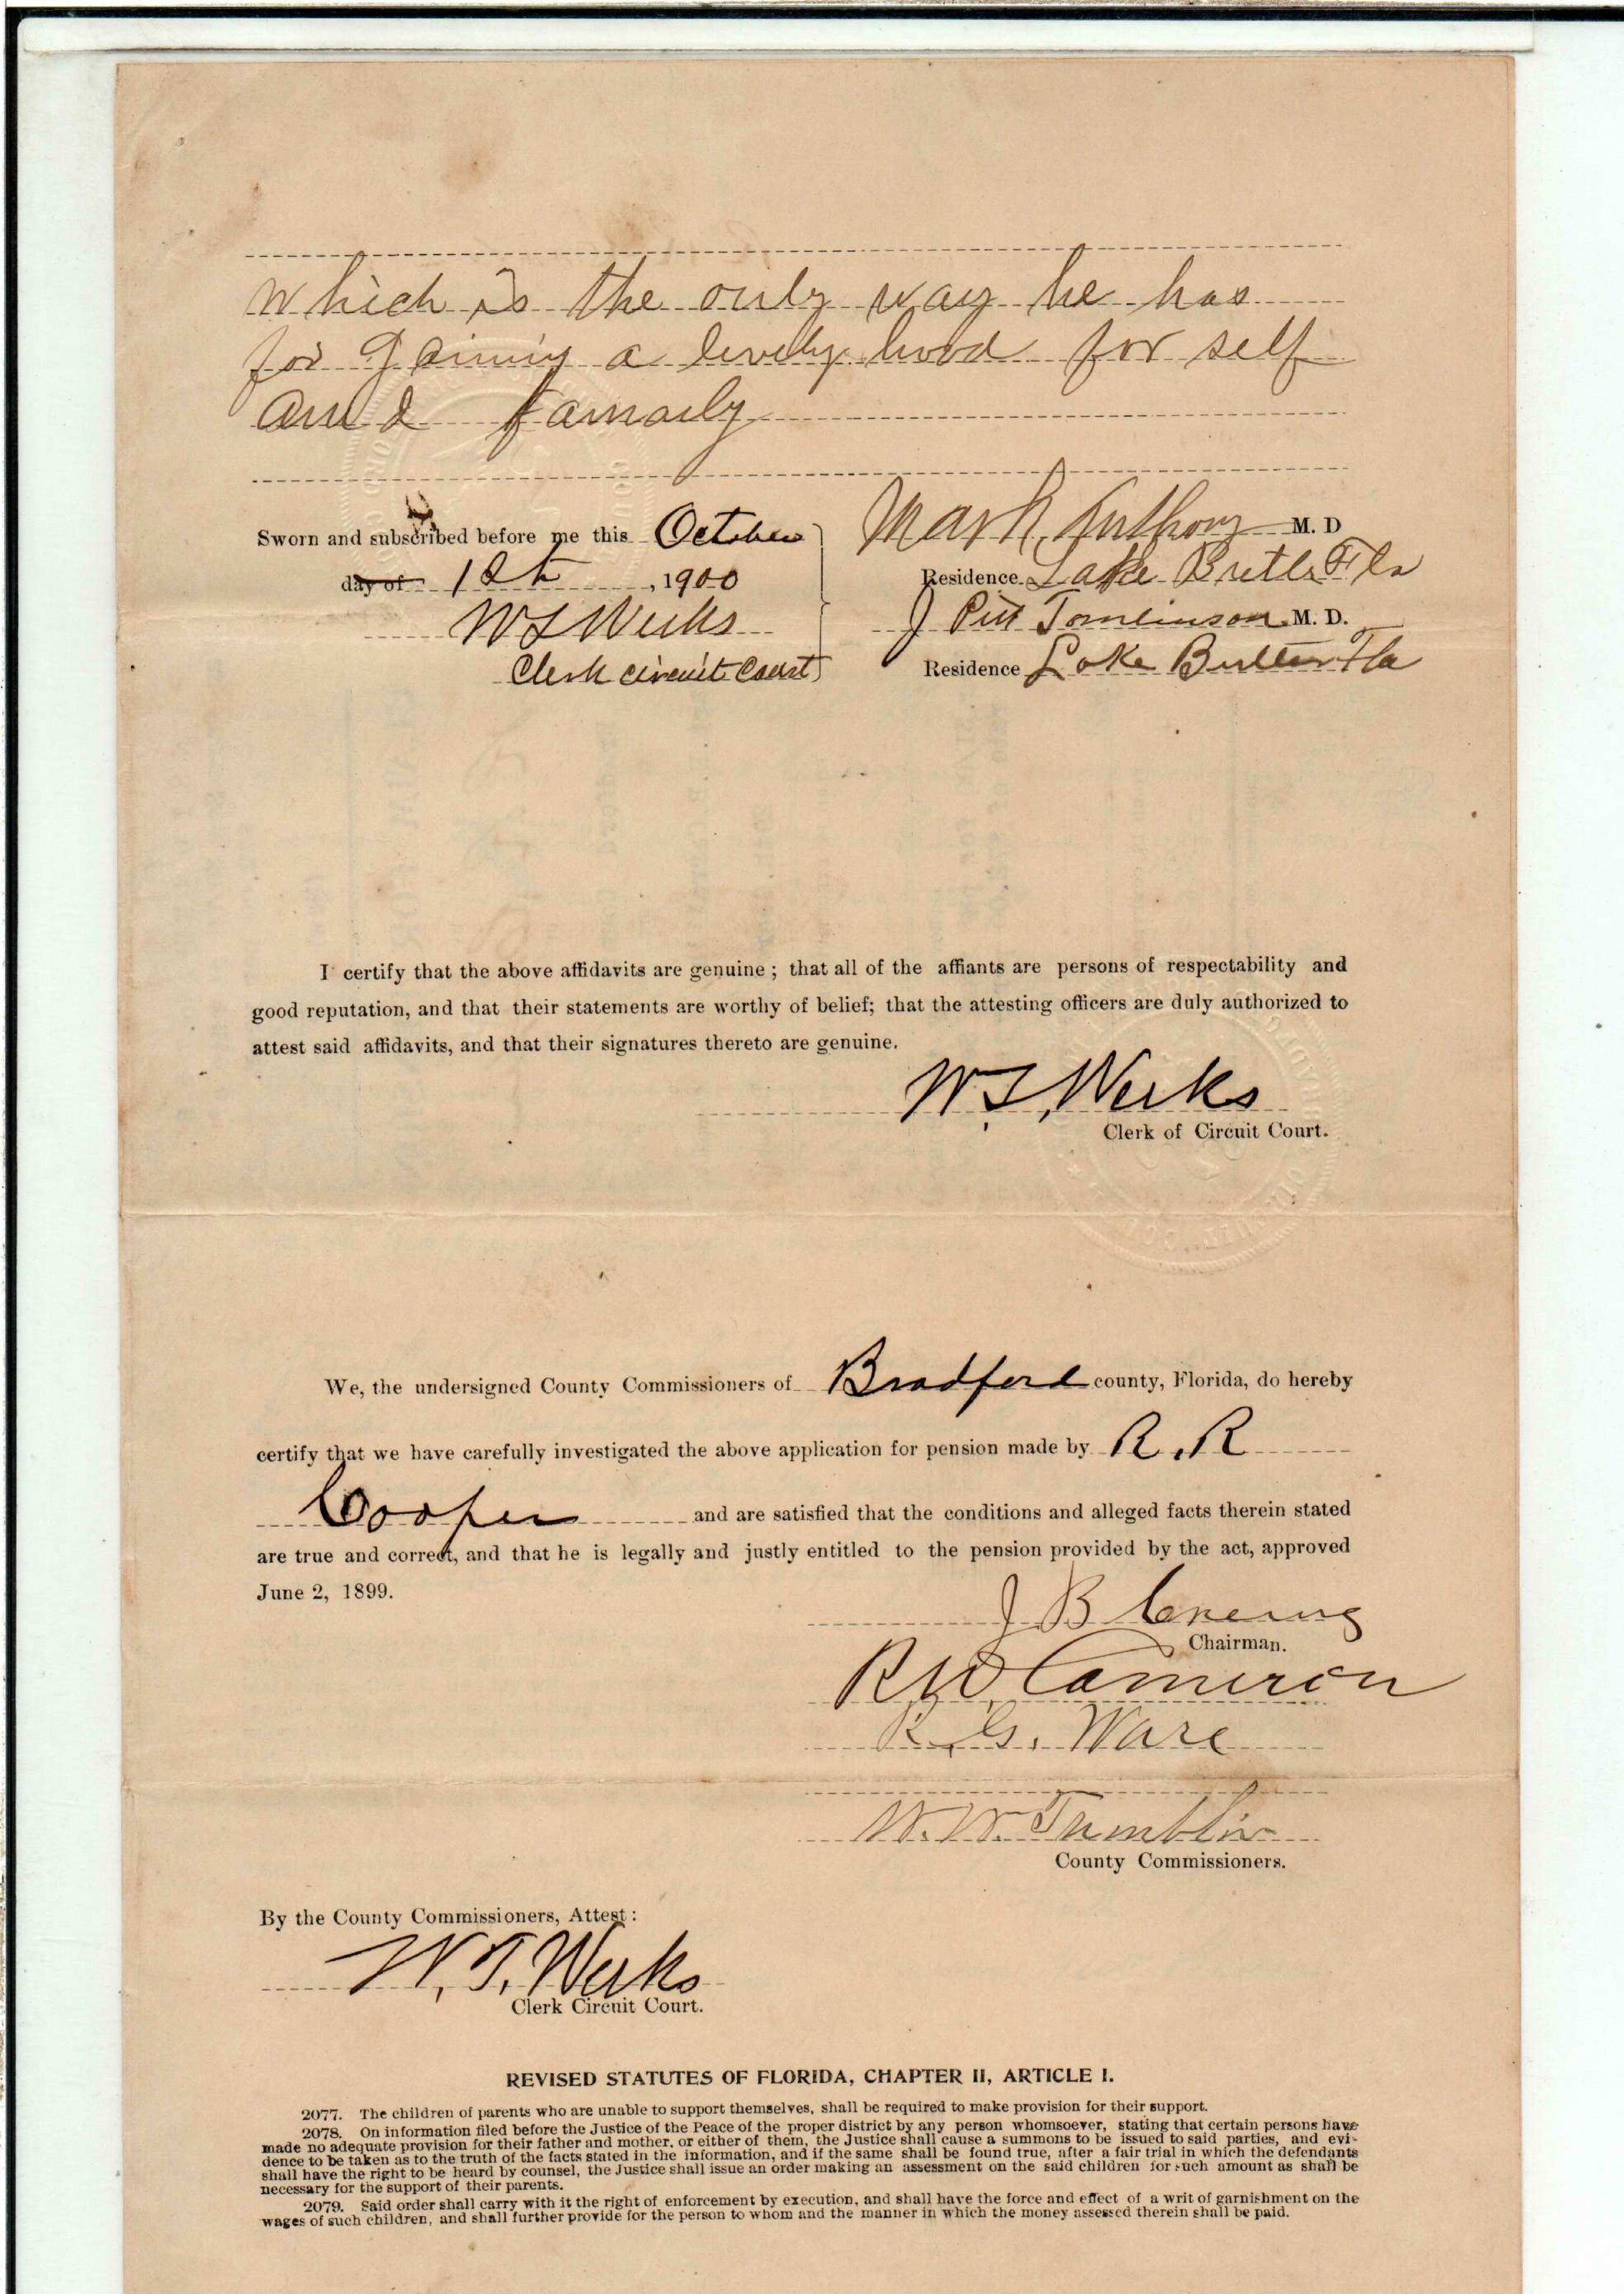 which is the only way he has
for gaining a lively hood for self
and famaily
Sworn and subscribed before me this October
day of 1st, 1900
W T Weeks
Clerk circuit Court
Mark Anthony M. D
Residence Lake Butler Fla
J Pitt Tomlinson M. D.
Residence Lake Butler Fla
I certify that the above affidavits are genuine ; that all of the affiants are persons of respectability and
good reputation, and that their statements are worthy of belief; that the attesting officers are duly authorized to
attest said affidavits, and that their signatures thereto are genuine.
W. T. Weeks
Clerk of Circuit Court.
We, the undersigned County Commissioners of Bradford county, Florida, do hereby
certify that we have carefully investigated the above application for pension made by R. R
Cooper and are satisfied that the conditions and alleged facts therein stated
are true and correct, and that he is legally and justly entitled to the pension provided by the act, approved
June 2, 1899.
J B
Chairman.
R W Cameron
R. G. Ware
W. W. Tumblin
County Commissioners.
By the County Commissioners, Attest :
W. T. Weeks
Clerk Circuit Court.
REVISED STATUTES OF FLORIDA, CHAPTER II, ARTICLE I.
2077. The children of parents who are unable to support themselves, shall be required to make provision for their support.
2078. On information filed before the Justice of the Peace of the proper district by any person whomsoever, stating that certain persons have
made no adequate provision for their father and mother, or either of them, the Justice shall cause a summons to be issued to said parties, and evi-
dence to be taken as to the truth of the facts stated in the information, and if the same shall be found true, after a fair trial in which the defendants
shall have the right to be heard by counsel, the Justice shall issue an order making an assessment on the said children for such amount as shall be
necessary for the support of their parents.
2079. Said order shall carry with it the right of enforcement by execution, and shall have the force and effect of a writ of garnishment on the
wages of such children, and shall further provide for the person to whom and the manner in which the money assessed therein shall be paid.